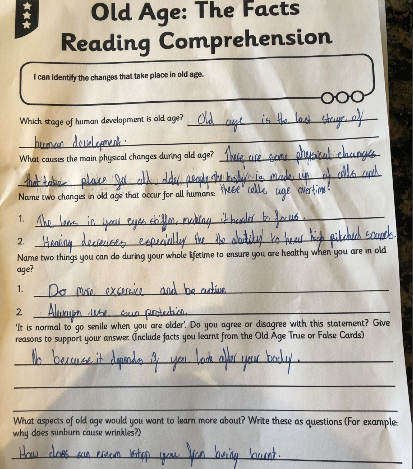 Old Age: The Facts
Reading Comprehension
I can identify the changes that take place in old age.
Which stage of human development is old age? Old age is the last stage of
human development.
What causes the main physical changes during old age? There are some physical changes
that take place for old the body is made up of cells and
Name two changes in old age that occur for all humans: these cells age overtime!
1. The lens in your eyes stiffen, making it harder to focus
2. Hearing decreases especially the ability to hear high pitched sounds
Name two things you can do during your whole lifetime to ensure you are healthy when you are in old
age?
1. Do more excercise and be active
2 Always use sun protection.
'It is normal to go senile when you are older'. Do you agree or disagree with this statement? Give
reasons to support your answer. (Include facts you learnt from the Old Age True or False Cards)
No because it depends if you look after your body.
What aspects of old age would you want to learn more about? Write these as questions (For example:
why does sunburn cause wrinkles?)
How does sun cream stop you from being burnt.